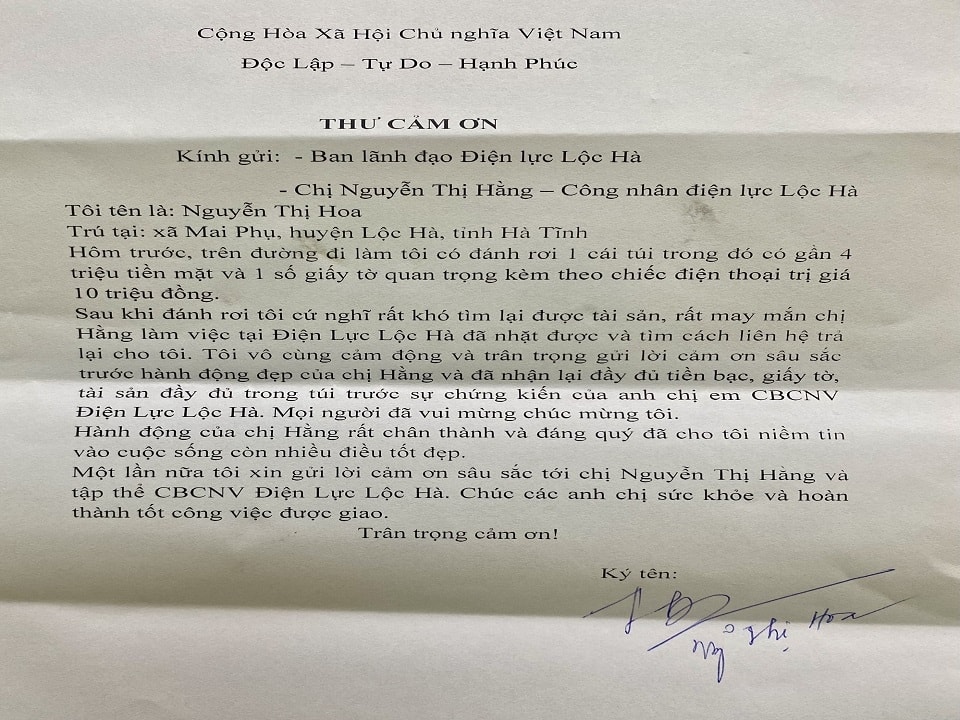 Cộng Hòa Xã Hội Chủ nghĩa Việt Nam
Độc Lập – Tự Do – Hạnh Phúc
THƯ CẢM ƠN
Kính gửi: - Ban lãnh đạo Điện lực Lộc Hà
- Chị Nguyễn Thị Hằng – Công nhân điện lực Lộc Hà
Tôi tên là: Nguyễn Thị Hoa
Trú tại: xã Mai Phụ, huyện Lộc Hà, tỉnh Hà Tĩnh
Hôm trước, trên đường đi làm tôi có đánh rơi 1 cái túi trong đó có gần 4
triệu tiền mặt và 1 số giấy tờ quan trọng kèm theo chiếc điện thoại trị giá
10 triệu đồng.
Sau khi đánh rơi tôi cứ nghĩ rất khó tìm lại được tài sản, rất may mắn chị
Hằng làm việc tại Điện Lực Lộc Hà đã nhặt được và tìm cách liên hệ trả
lại cho tôi. Tôi vô cùng cảm động và trân trọng gửi lời cảm ơn sâu sắc
trước hành động đẹp của chị Hằng và đã nhận lại đầy đủ tiền bạc, giấy tờ,
tài sản đầy đủ trong túi trước sự chứng kiến của anh chị em CBCNV
Điện Lực Lộc Hà. Mọi người đã vui mừng chúc mừng tôi.
Hành động của chị Hằng rất chân thành và đáng quý đã cho tôi niềm tin
vào cuộc sống còn nhiều điều tốt đẹp.
Một lần nữa tôi xin gửi lời cảm ơn sâu sắc tới chị Nguyễn Thị Hằng và
tập thể CBCNV Điện Lực Lộc Hà. Chúc các anh chị sức khỏe và hoàn
thành tốt công việc được giao.
Trân trọng cảm ơn!
Ký tên:
Thị Hoa